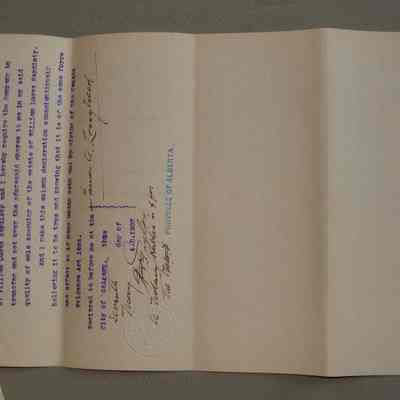 of William James Hardisty and I hereby require the Company to
transfer and set over the aforesaid shares to me in my said
quality of sole executor of the estate of William Lucas Hardisty.
And I make this solemn declaration conscientiously
believing it to be true and knowing that it is of the same force
and effect as if made under oath and by virtue of the Canada
Evidence Act 1893.
Declared to before me at the
City of Calgary, this
Seventh day of
A.D. 1907
A Notary Public in & for
the PROVINCE OF ALBERTA.